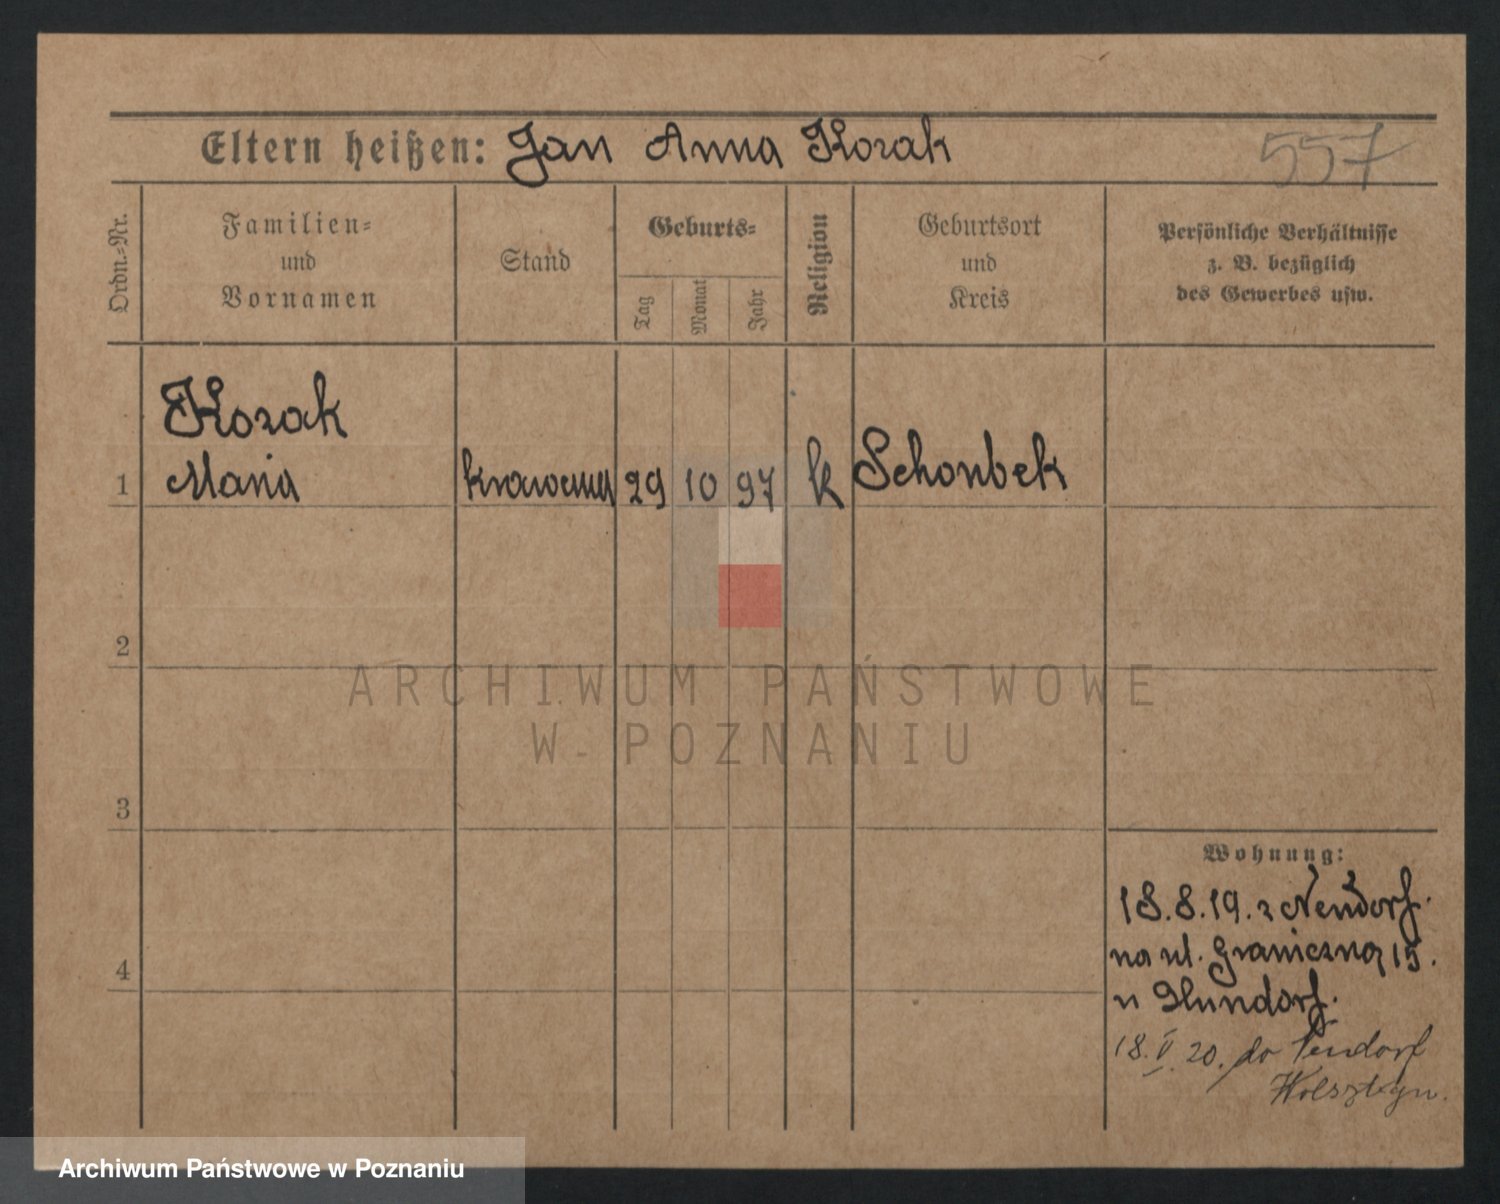 Eltern heißen: Jan Anna Kozak
557
Ordn.-Nr.
Familien-
und
Vornamen
Stand
Geburts-
Tag
Monat
Jahr
Religion
Geburtsort
und
Kreis
Persönliche Verhältnisse
z. B. bezüglich
des Gewerbes usw.
Kozak
1 Maria krawcowa 29 10 97 k Schonbek
2
ARCHIWUM PAŃSTWOWE
W POZNANIU
3
Wohnung:
18.8.19. z Neudorf.
na ul. Graniczną 15.
4
u
18. V. 20. do Neudorf
Wolsztyn.
Archiwum Państwowe w Poznaniu